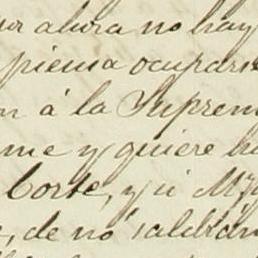 ahora no hay
piensa ocuparse
n á la Suprem
me y quiere ha
Corte, y si M
, de no